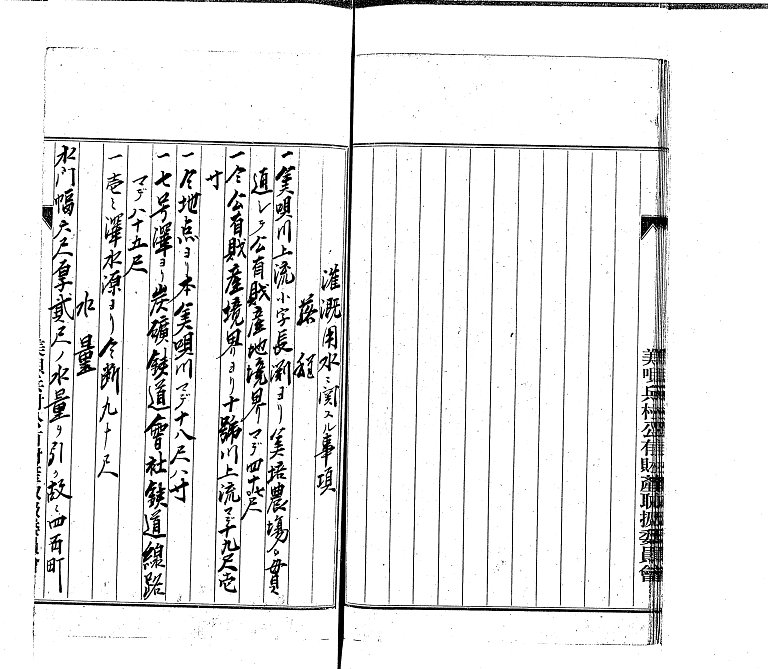 美唄兵村公有財産取扱委員會
灌漑用水ニ関スル事項
落程
一美唄川上流小字長渕ヨリ美培農場ヲ貫
通シテ公有財産地境界マデ四十七尺
一仝公有財産境界ヨリ十號川上流マデ十九尺
寸
一仝地点ヨリ本美唄川マデ十八尺八寸
一七号澤ヨリ炭礦鉄道會社鉄道線路
マデ八十五尺
一壱ノ澤水源ヨリ仝断九十尺
水量
水门幅六尺厚貳尺ノ水量ヲ引ク故ニ四百町